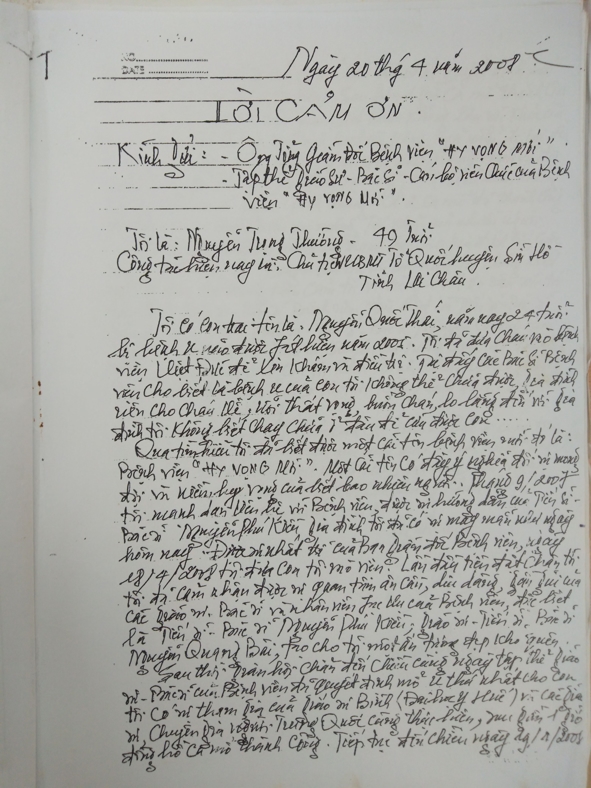 NO.
DATE
Ngày 20 thg 4 năm 2008
LỜI CẢM ƠN.
Kính Gửi: - Ông Tổng Giám đốc Bệnh viện "HY VỌNG MỚI"
- Tập thể Giáo Sư - Bác Sĩ - Cán bộ, viên Chức của Bệnh
viện "HY VỌNG MỚI".
Tôi là: Nguyễn Trọng Thưởng - 49 tuổi
Công tác hiện nay là: Chủ tịch UBMT Tổ Quốc huyện Sìn Hồ
Tỉnh Lai Châu.
Tôi có con trai tên là: Nguyễn Quốc Thái, năm nay 24 tuổi
bị bệnh u não được phát hiện năm 2005. Tôi đã đưa Cháu vào bệnh
viện Việt Đức để khám và điều trị. Tại đây các Bác Sĩ Bệnh
viện cho biết là bệnh u của con tôi không thể chữa được, gia đình
nên cho cháu về, nỗi thất vọng, buồn chán, lo lắng đến với gia
đình tôi không biết chạy chữa ở đâu để cứu được con....
Qua tìm hiểu tôi đã biết được một cái tên bệnh viện mới đó là:
Bệnh viện "HY VỌNG MỚI". Một cái tên có đầy ý nghĩa đối với mong
đợi và niềm hy vọng của biết bao nhiêu người. Tháng 9/2007
tôi mạnh dạn liên hệ với Bệnh viện, được sự hướng dẫn của Tiến Sĩ-
Bác sĩ Nguyễn Phú Kiều gia đình tôi đã có sự may mắn như ngày
hôm nay. Được sự nhất trí của Ban Giám đốc Bệnh viện, ngày
18/4/2008 tôi đưa con tôi vào viện. Lần đầu tiên đặt chân tới
tôi đã cảm nhận được sự quan tâm ân cần, dịu dàng, gần gũi của
các Giáo sư - Bác sĩ và nhân viên phục vụ của Bệnh viện, đặc biệt
là Tiến sĩ - Bác sĩ Nguyễn Phú Kiều, Giáo sư - Tiến sĩ - Bác sĩ
Nguyễn Quang Bài, cho tôi một ấn tượng đẹp khó quên.
Sau khi hội chẩn đến chiều cùng ngày tập thể Giáo
sư - Bác sĩ của Bệnh viện đã quyết định mổ lần thứ nhất cho con
tôi có sự tham gia của Giáo sư Bình (Đại học Y Huế) và các Giáo
sư, Chuyên gia người Trung Quốc cùng thực hiện, sau gần
đồng hồ ca mổ thành công. Tiếp tục đến chiều ngày